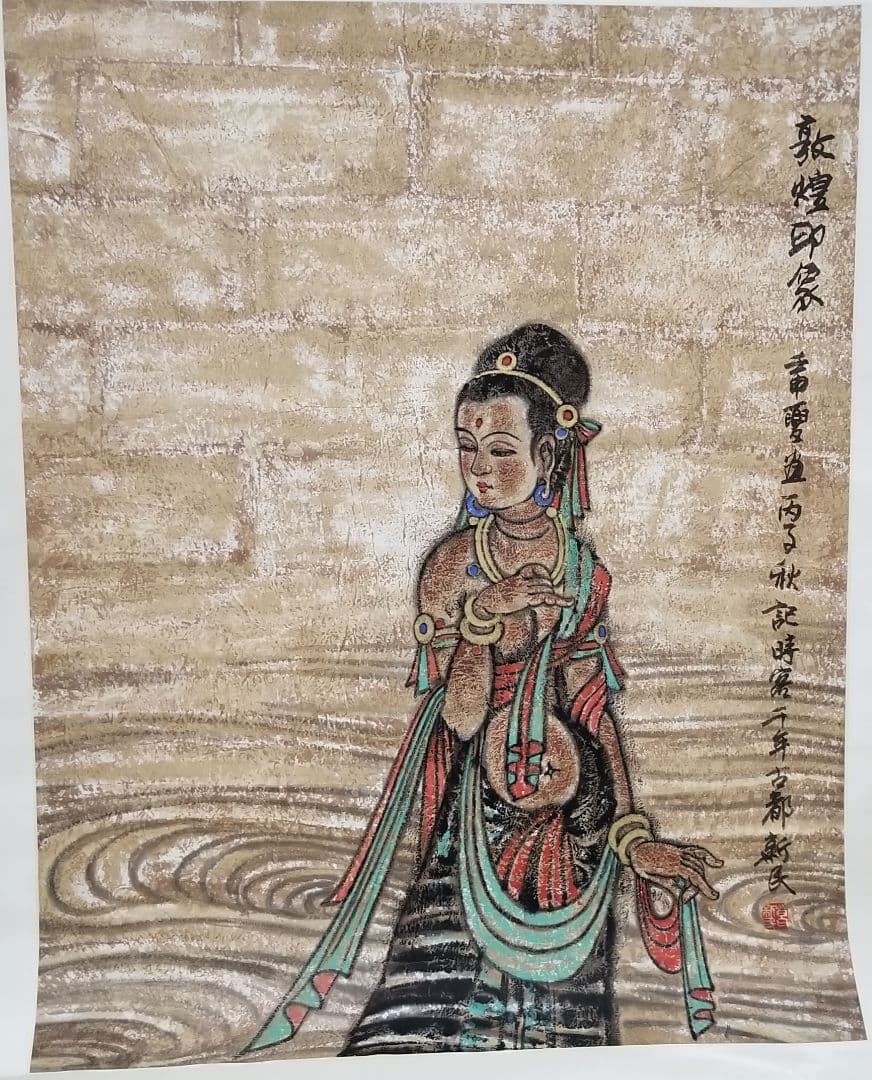 敦煌印象 丙子秋記時客千年古都新民